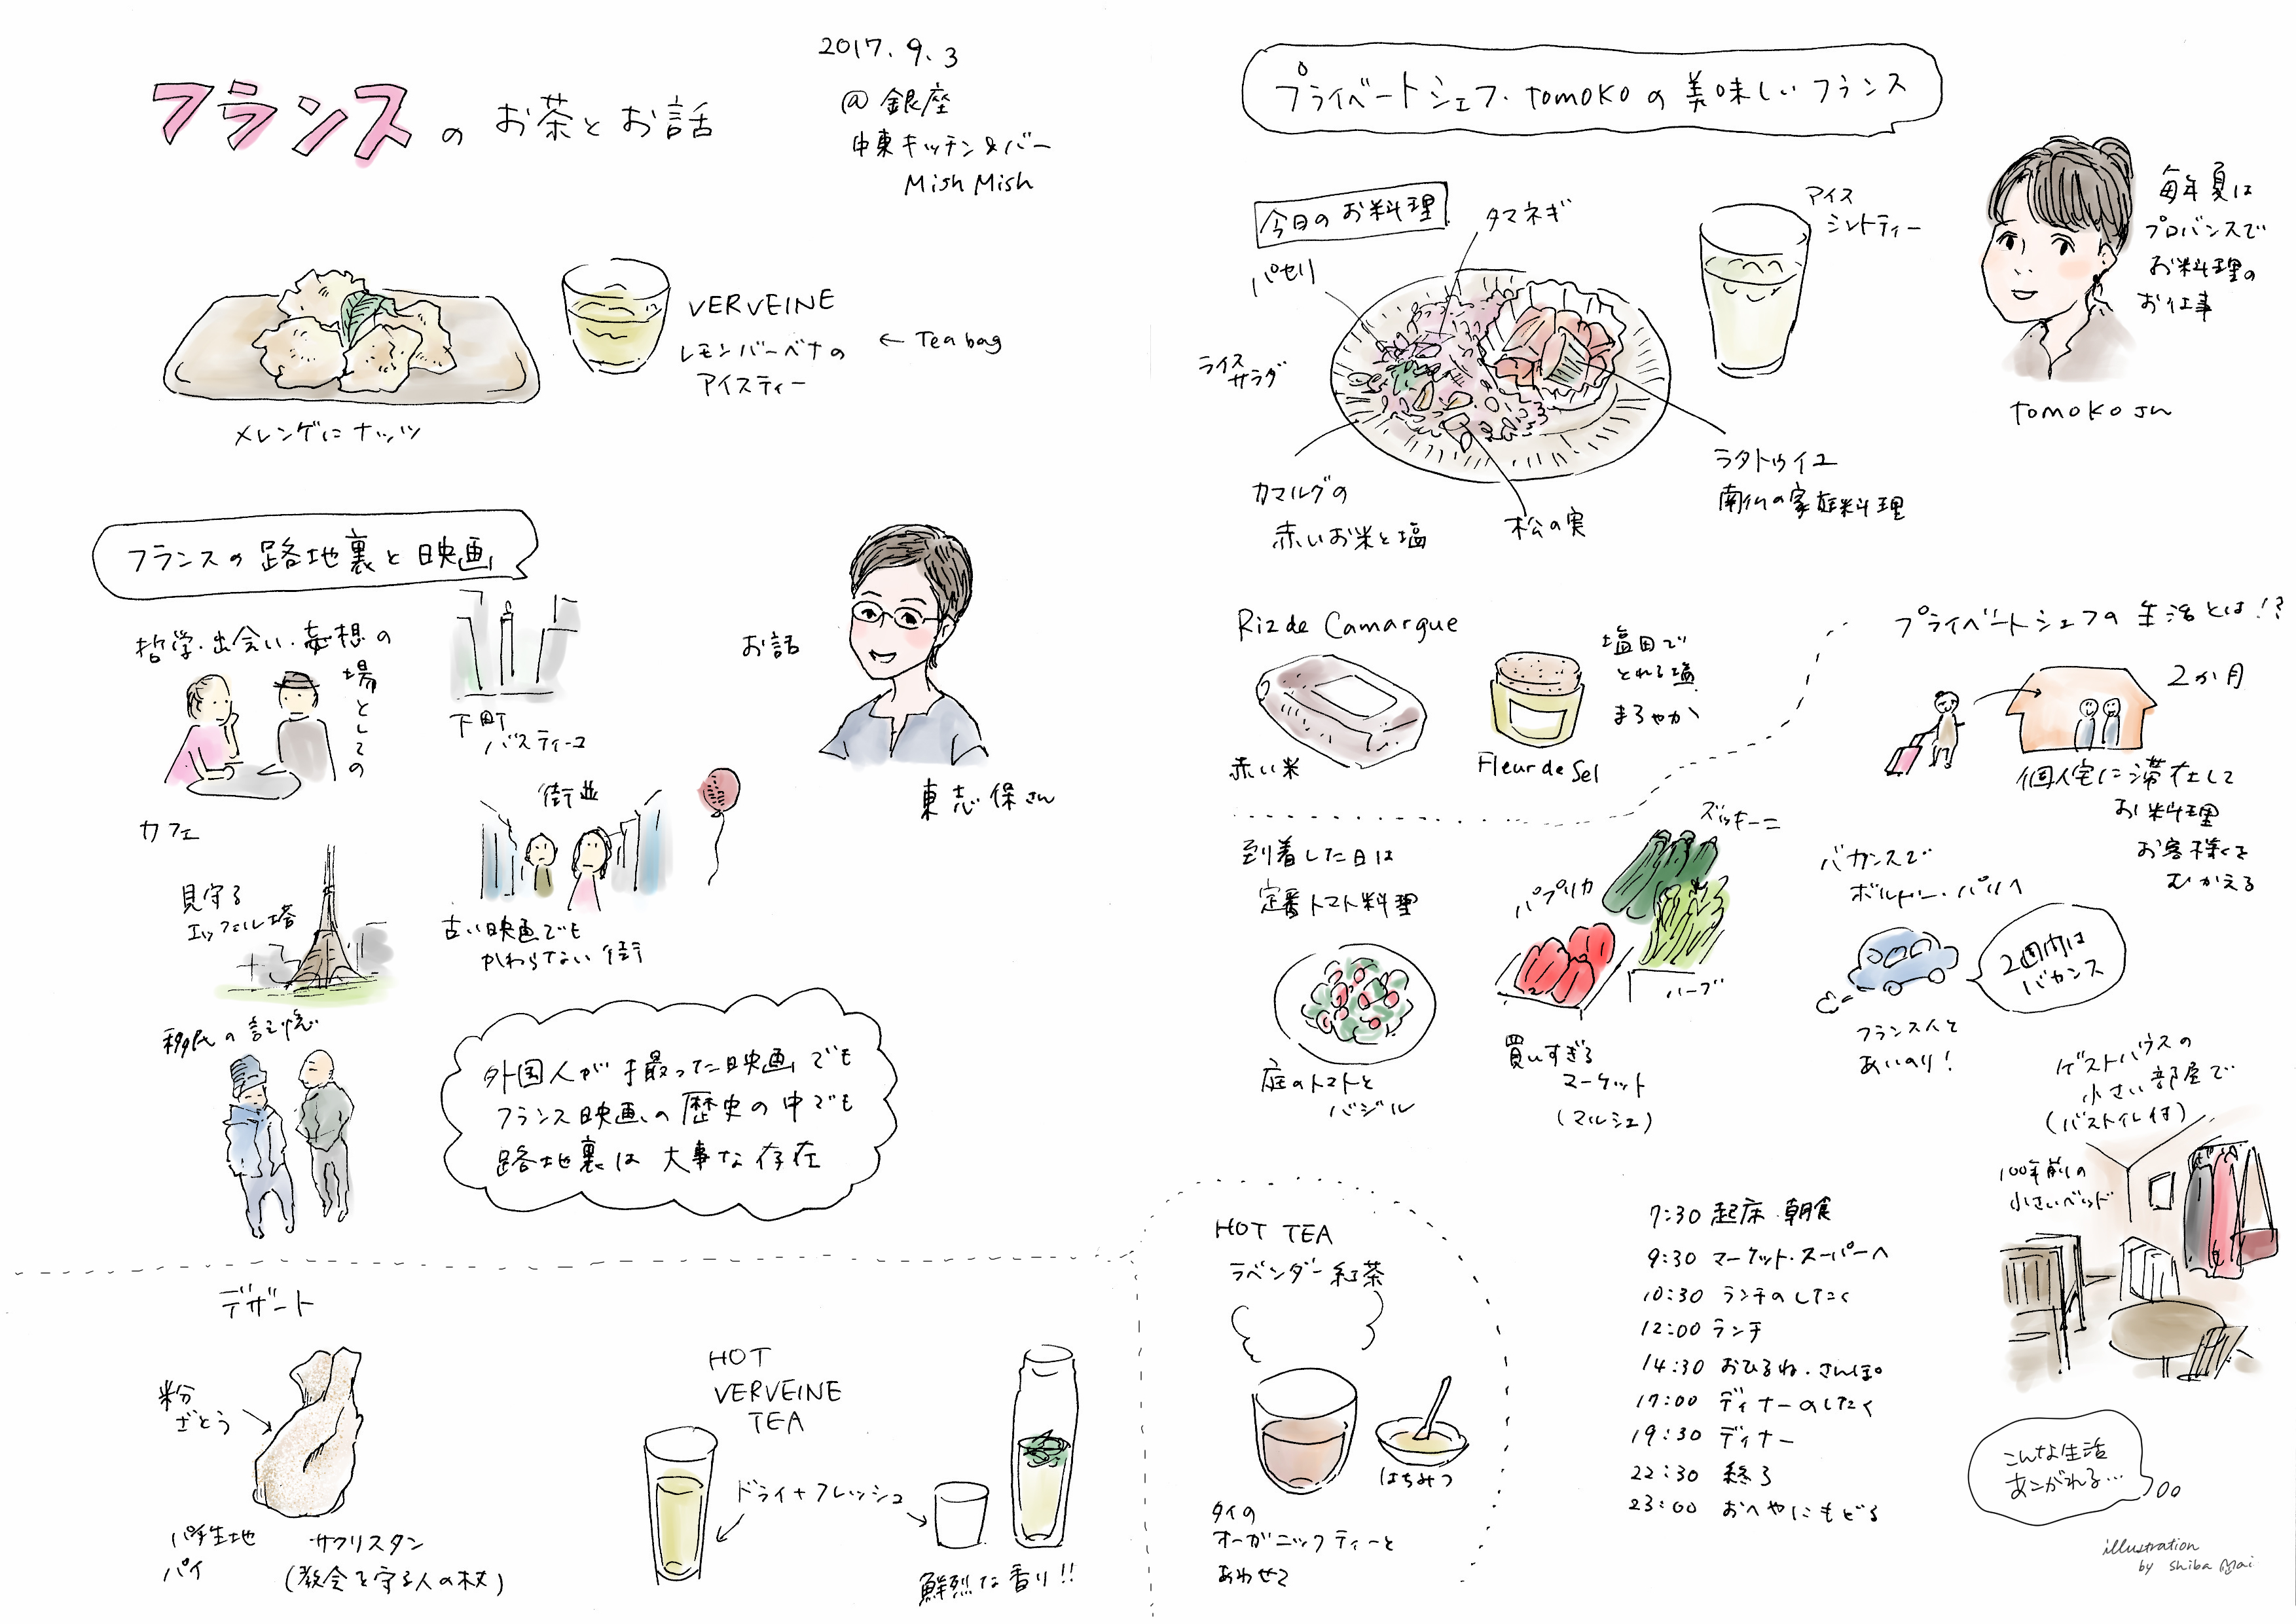 フランスのお茶とお話
2017.9.3
@銀座
中東キッチン&バー
Mish Mish
VERVEINE
レモンバーベナの
アイスティー
← Tea bag
メレンゲにナッツ
フランスの路地裏と映画
哲学・出会い・妄想の
場としての
カフェ
下町
バスティーユ
お話
東 志保さん
街並
古い映画でも
かわらない街
見守る
エッフェル塔
移民の記憶
外国人が撮った映画でも
フランス映画の歴史の中でも
路地裏は大事な存在
デザート
粉
ざとう
パイ生地
パイ
サクリスタン
(教会を守る人の杖)
HOT
VERVEINE
TEA
ドライ+フレッシュ
鮮烈な香り!!
プライベートシェフ・tomokoの美味しいフランス
今日のお料理
パセリ
タマネギ
アイス
シントティー
毎年夏は
プロバンスで
お料理の
お仕事
tomokoさん
ライス
サラダ
カマルグの
赤いお米と塩
松の実
ラタトゥイユ
南仏の家庭料理
Riz de Camargue
赤い米
Fleur de Sel
塩田で
とれる塩
まろやか
プライベートシェフの生活とは!?
2か月
個人宅に滞在して
お料理
お客様を
むかえる
到着した日は
定番トマト料理
庭のトマトと
バジル
ズッキーニ
パプリカ
ハーブ
買いすぎる
マーケット
(マルシェ)
バカンスで
ボルドー・パリへ
2週間は
バカンス
フランス人と
あいのり!
ゲストハウスの
小さい部屋で
(バストイレ付)
100年前の
小さいベッド
HOT TEA
ラベンダー紅茶
はちみつ
タイの
オーガニックティーと
あわせて
7:30 起床・朝食
9:30 マーケット・スーパーへ
10:30 ランチのしたく
12:00 ランチ
14:30 おひるね・さんぽ
17:00 ディナーのしたく
19:30 ディナー
22:30 終了
23:00 おへやにもどる
こんな生活
あこがれる…
illustration
by shiba